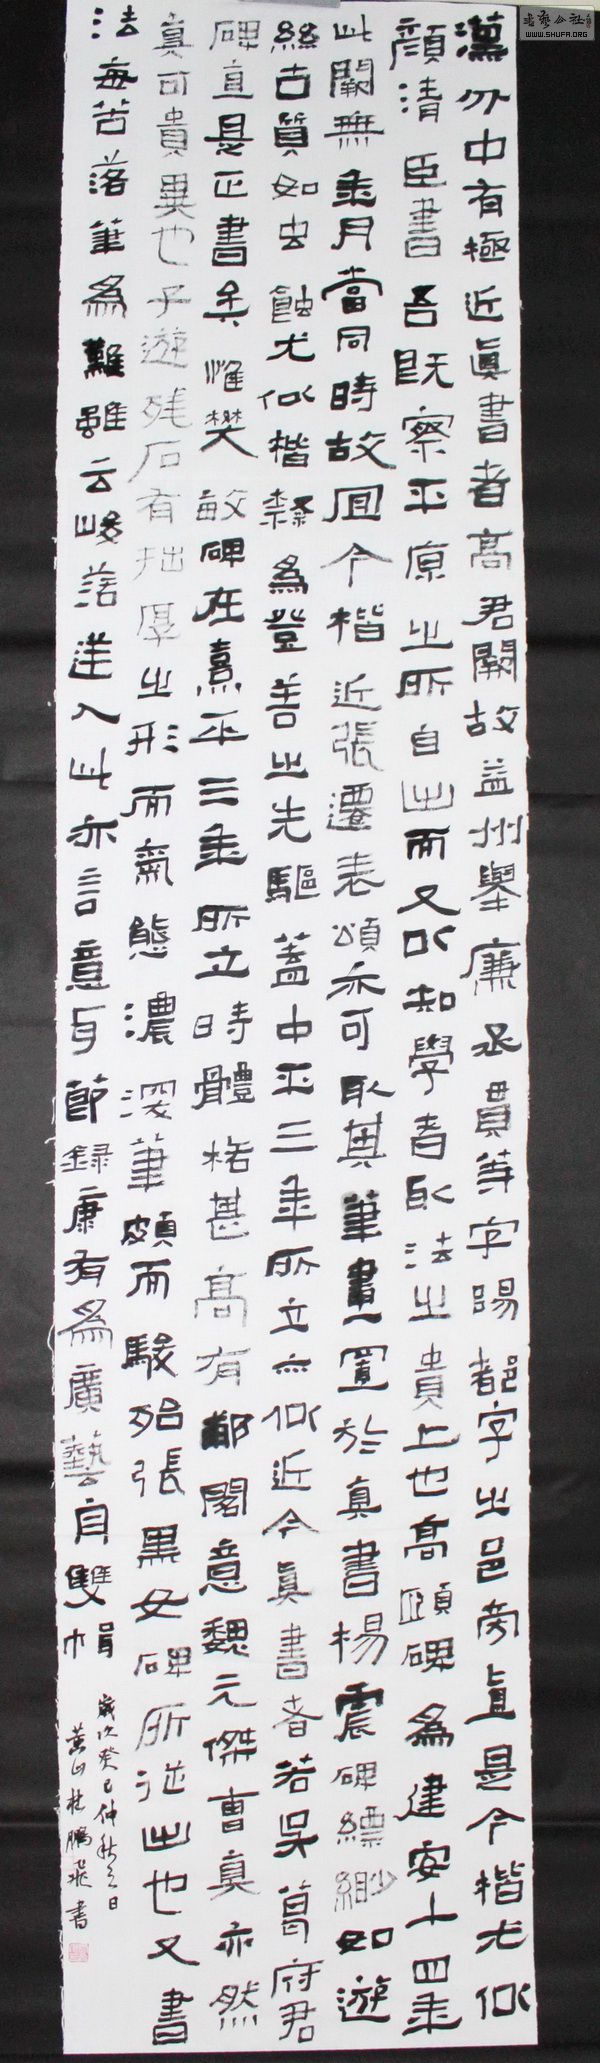 漢分中有極近真書者高君闕故益州舉廉丞貫等字陽都字之邑旁直是今楷尤似
顏清臣書吾既察平原之所自出而又以知學者取法之貴上也高頤碑為建安十四年
此闕無年月當同時故同今楷近張遷表頌亦可取其筆畫置於真書楊震碑縹緲如遊
絲古質如虫蝕尤似楷隸為登善之先驅蓋中平三年所立無似近今真書者若吴葛府君
碑直是正書矣惟樊敏碑在熹平三年所立時體格甚高有郙閣意魏元傑曹真亦然
真可貴異也子遊残石有拙厚之形而氣態濃深筆頗而駿殆張黑女碑所從出也又書
法每苦落筆為難雖云峻落逆入此亦言意耳節録康有為廣藝舟雙楫
歲次癸巳仲秋之日
黄山杜鵬飛書
書藝公社
WWW.SHUFA.ORG